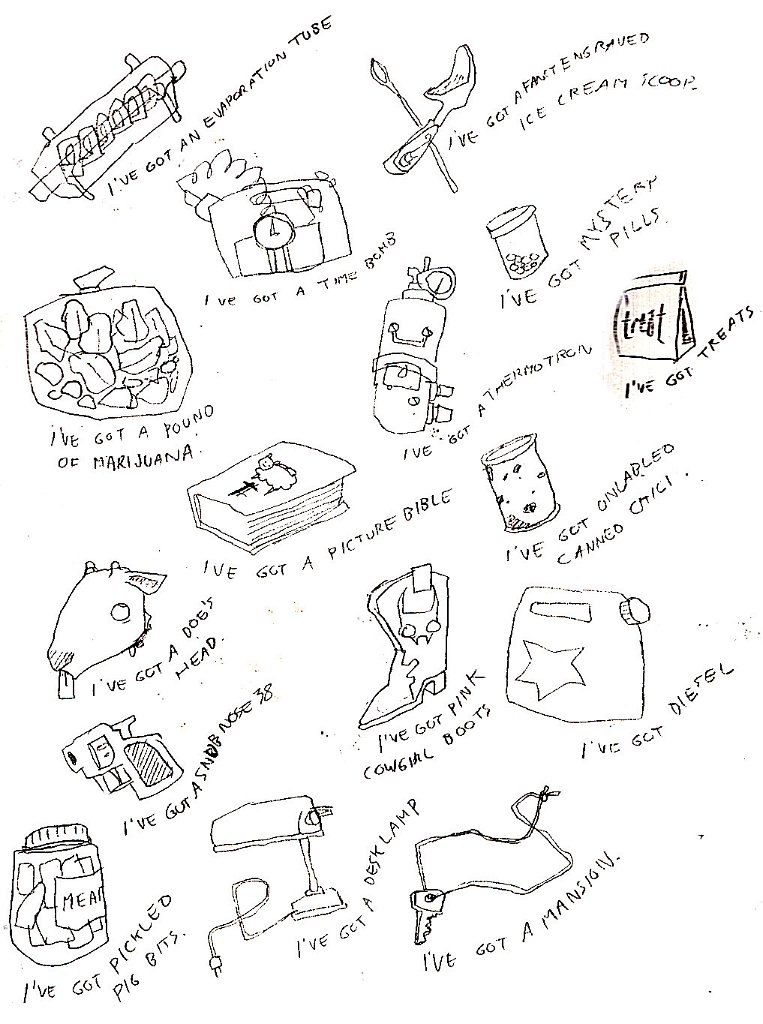 I'VE GOT AN EVAPORATION TUBE
I'VE GOT A FANCY ENGRAVED
ICE CREAM SCOOP.
I'VE GOT A TIME BOMB
I'VE GOT MYSTERY
PILLS.
treat
I'VE GOT TREATS
I'VE GOT A POUND
OF MARIJUANA.
I'VE GOT A THERMOTRON
I'VE GOT A PICTURE BIBLE
I'VE GOT UNLABLED
CANNED CHILI.
I'VE GOT A DOE'S
HEAD.
I'VE GOT PINK
COWGIRL BOOTS
I'VE GOT DIESEL
I'VE GOT A SNUB NOSE 38
MEAT
I'VE GOT PICKLED
PIG BITS.
I'VE GOT A DESK LAMP
I'VE GOT A MANSION.